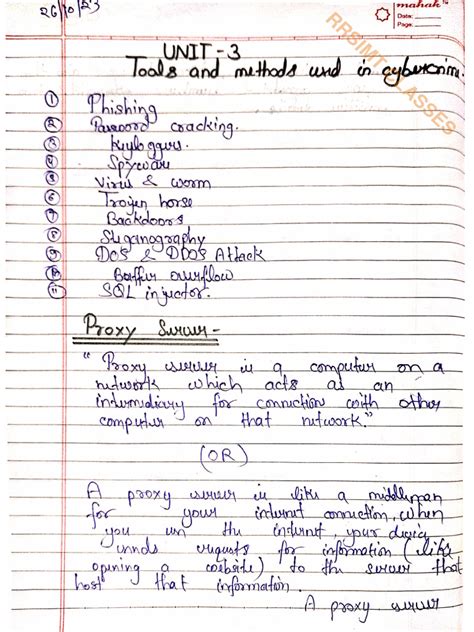 26/10/23
mahak
Date:
Page:
RRSIMT CLASSES
UNIT - 3
Tools and methods used in cybercrime
① Phishing
② Password cracking.
③ Keyloggers.
④ Spyware
⑤ Virus & worm
⑥ Trojen horse
⑦ Backdoors
⑧ Steganography
⑨ DOS & DDOS Attack
⑩ Buffer overflow
⑪ SQL injector.
Proxy Server -
"Proxy server is a computer on a
network which acts as an
intermediary for connection with other
computer on that network."
(OR)
A proxy server is like a middleman
for your internet connection, when
you use the internet, your device
sends requests for information (like
opening a website) to the server that
host that information.
A proxy server